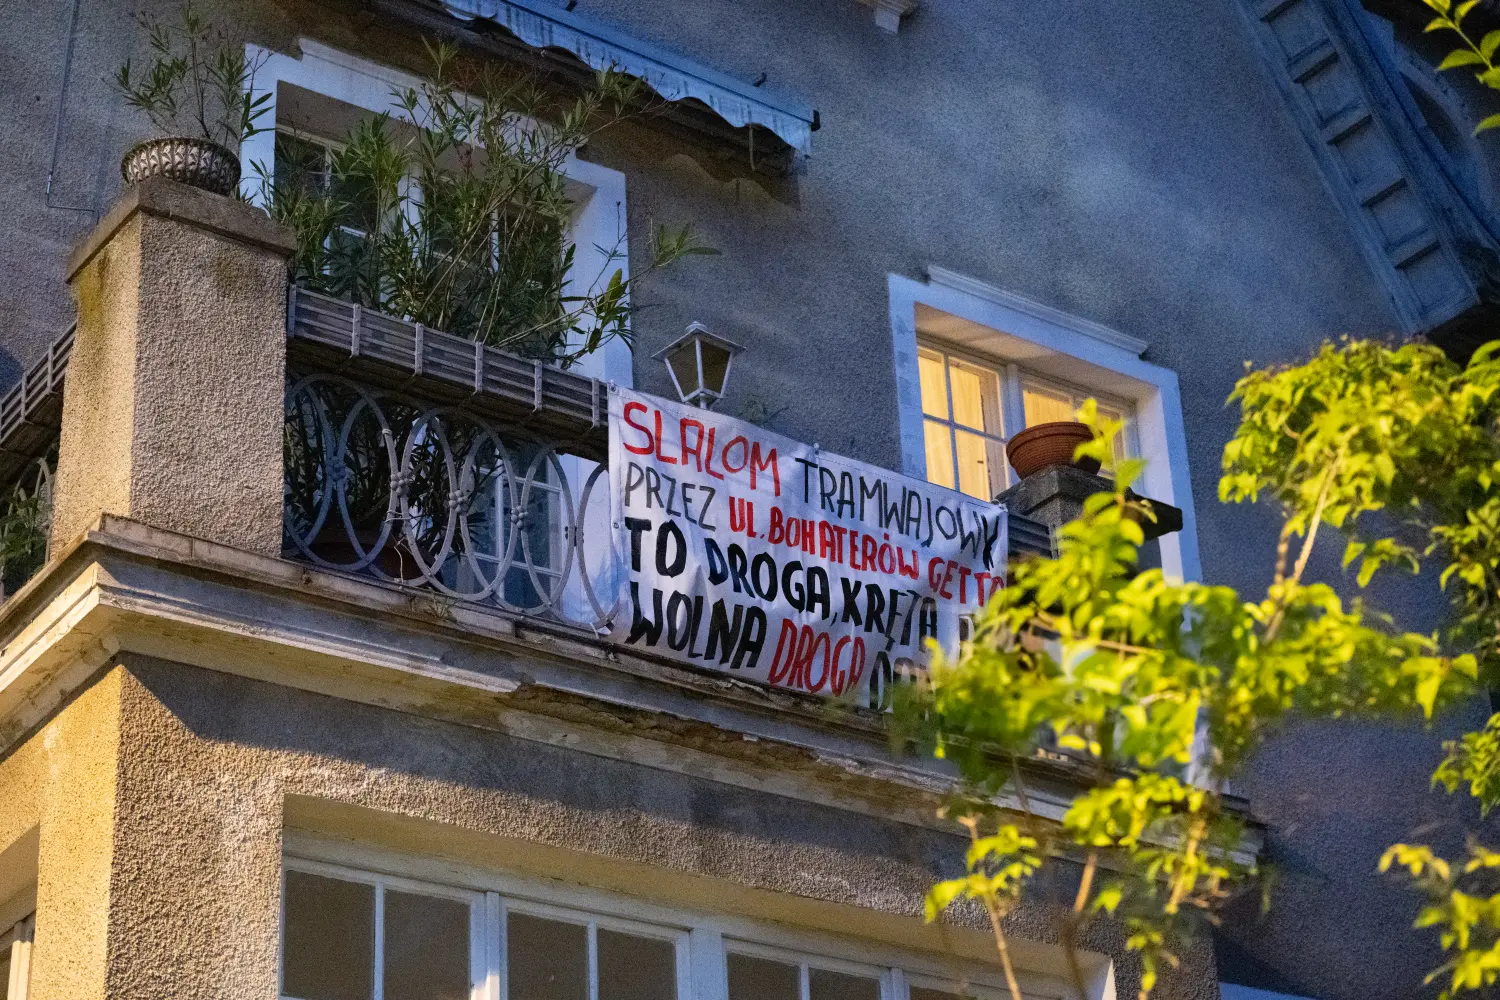 SLALOM TRAMWAJOWY
PRZEZ UL. BOHATERÓW GETTA
TO DROGA, KRĘTA,
WOLNA DROGA